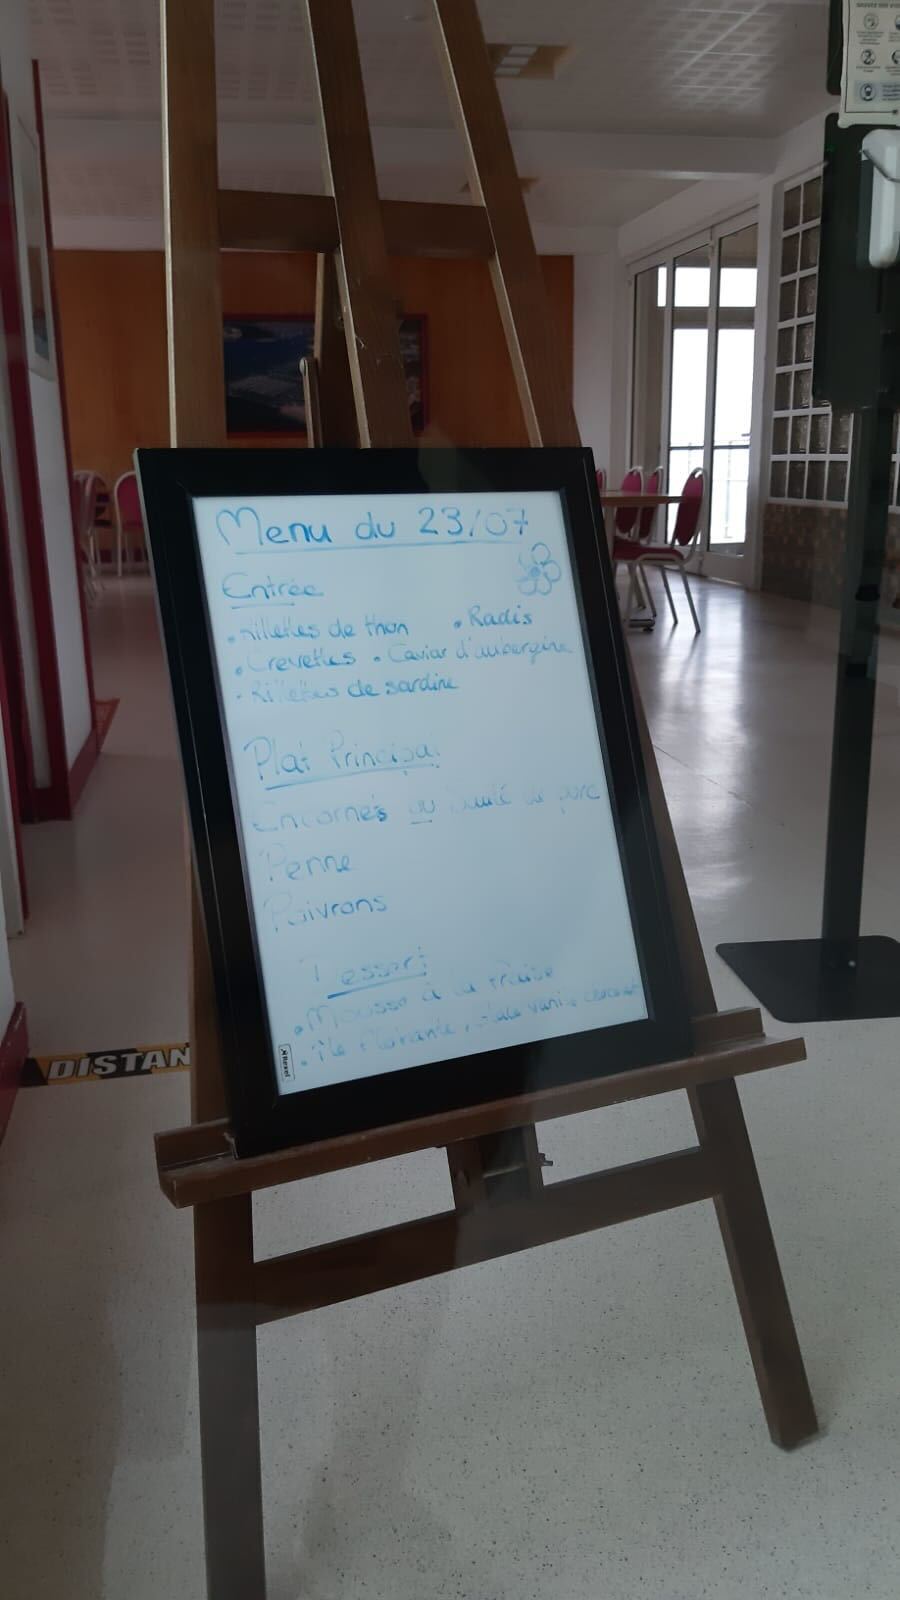 Menu du 23/07
Entrée
• Rillettes de thon • Radis
• Crevettes • Caviar d'aubergine
• Rillettes de sardine
Plat Principal
Encornets ou Sauté de porc
Penne
Poivrons
Dessert
• Mousse à la fraise
• île flottante, glace vanille
Rexel
DISTAN